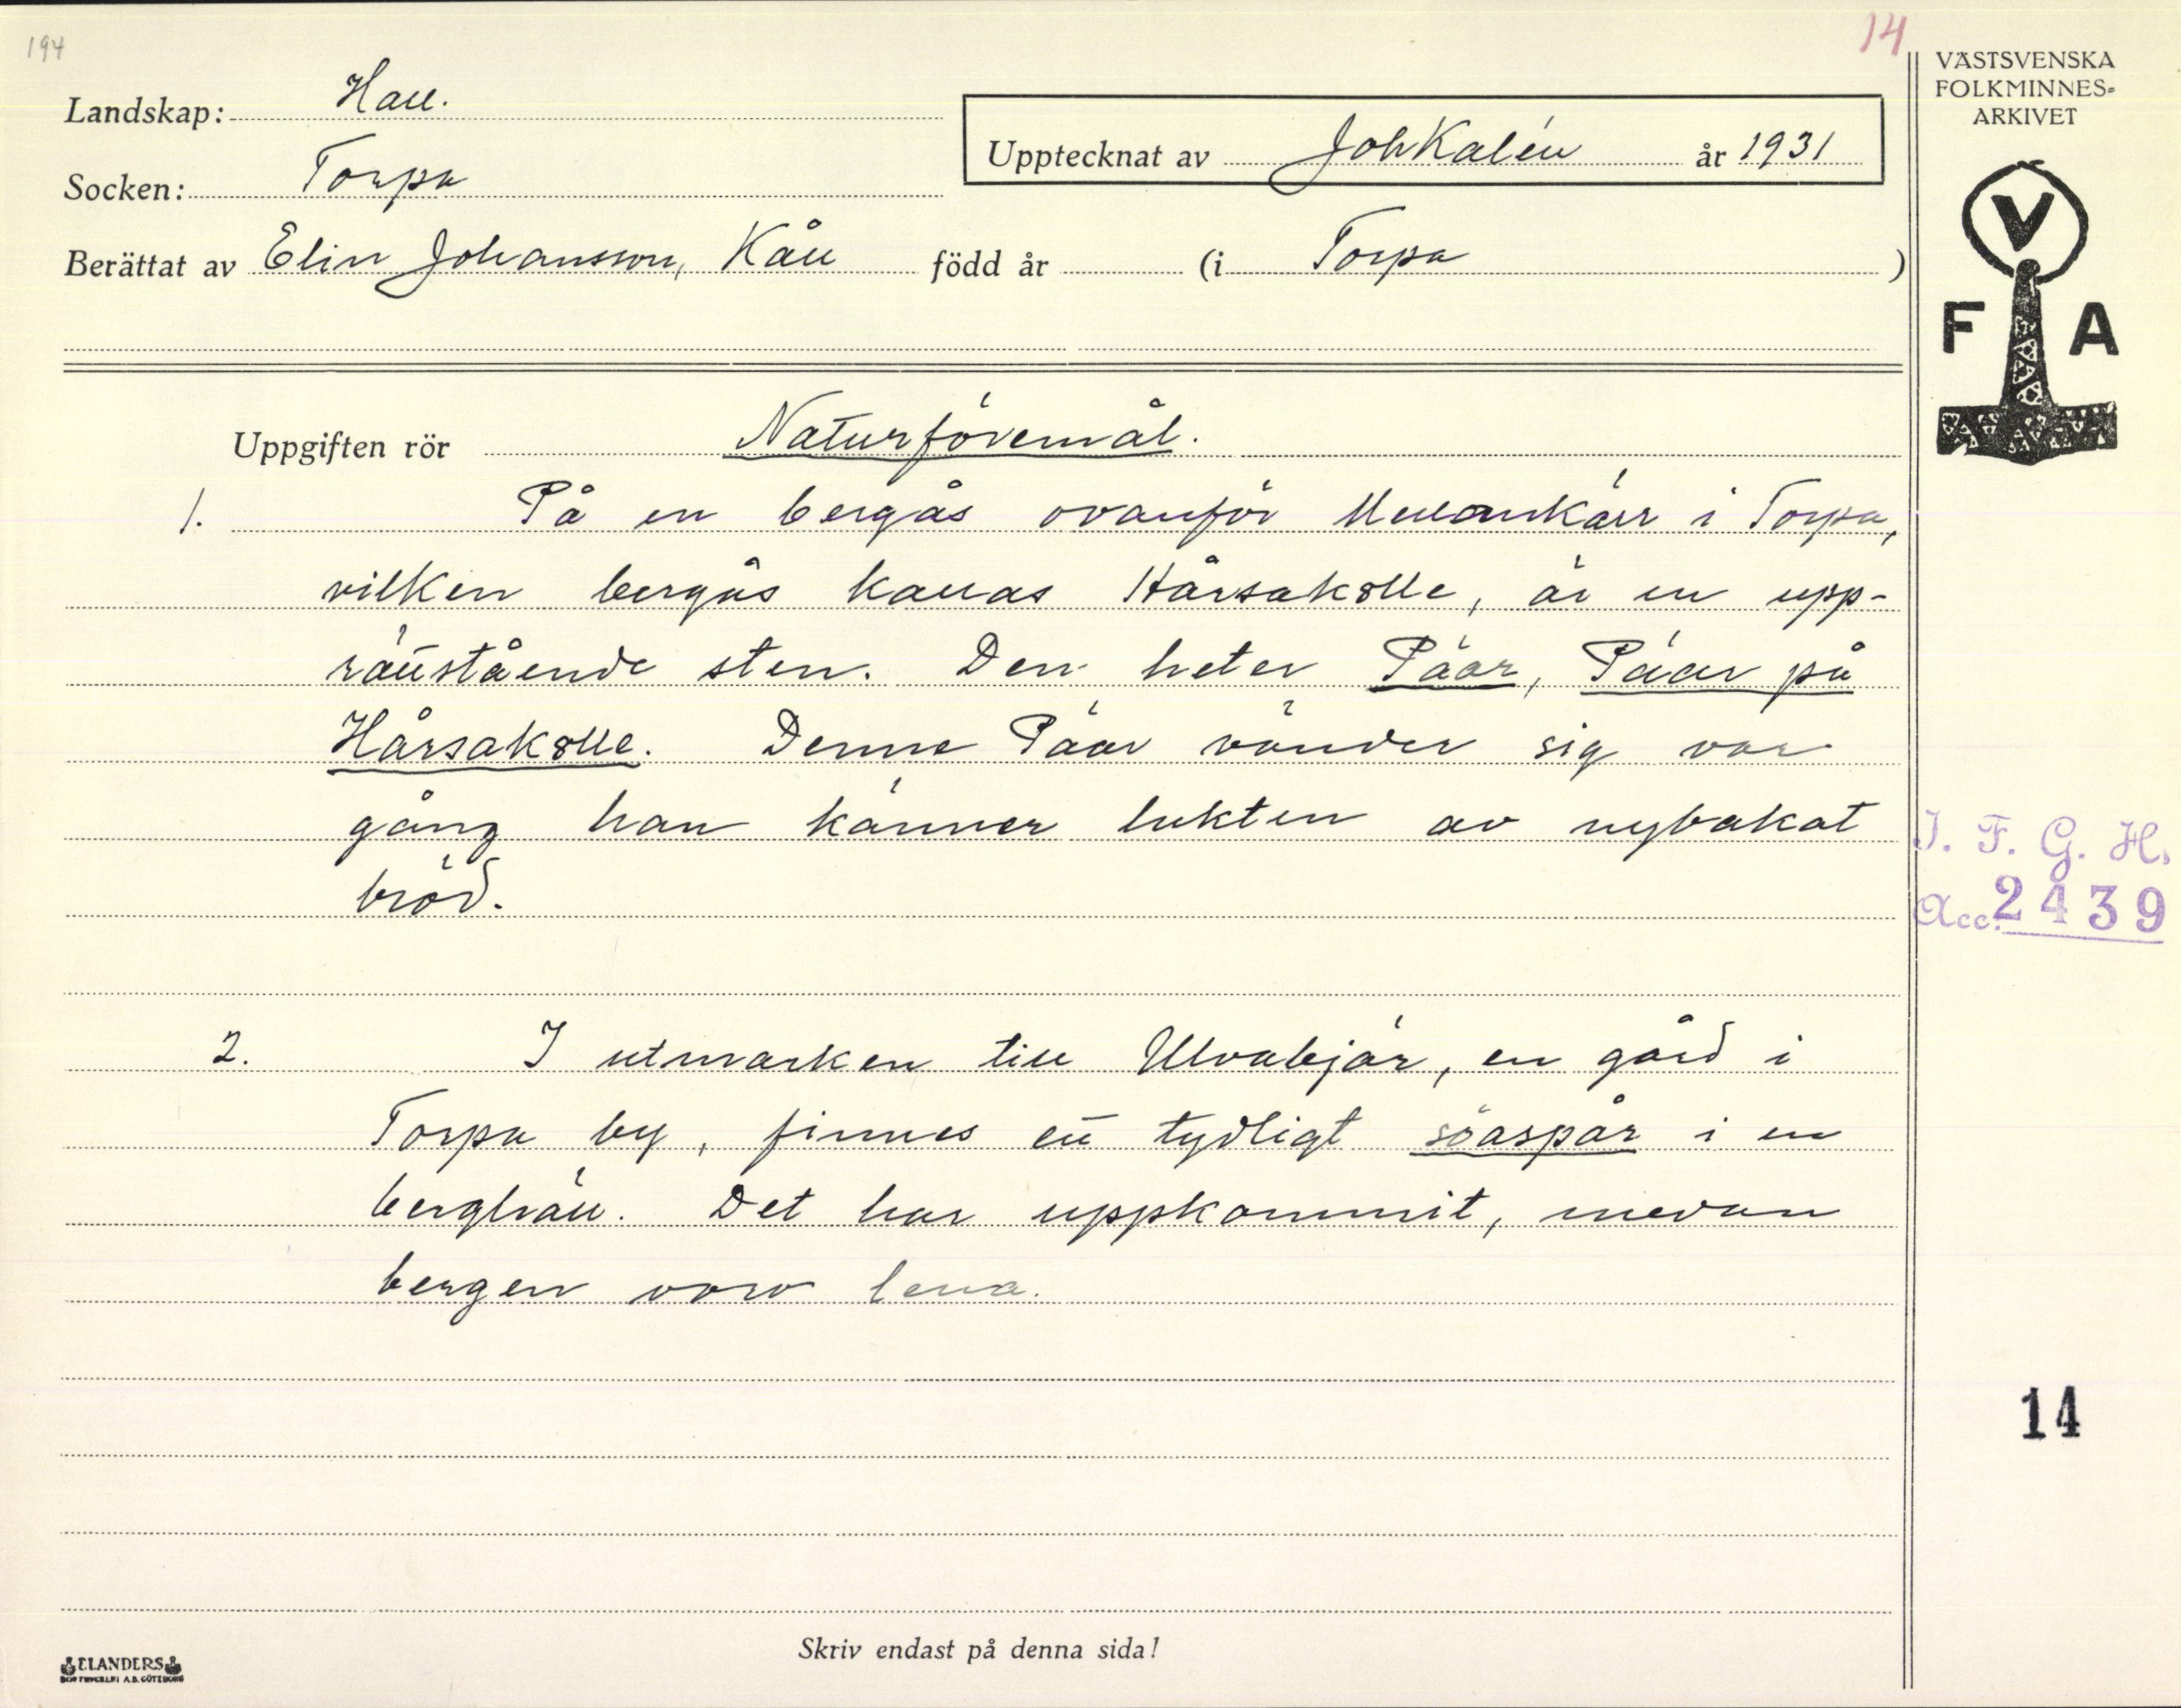 194
14
VÄSTSVENSKA
FOLKMINNES-
ARKIVET
Landskap: Hall.
Upptecknat av Joh Kalén år 1931
Socken: Torpa
Berättat av Elin Johansson, Kåll född år (i Torpa )
V
F A
Uppgiften rör Naturföremål.
1. På en bergås ovanför i Torpa,
vilken bergås kallas Hårsakolle, är en upp-
rättstående sten. Den heter Päar, Päar på
Hårsakolle. Denne Päar vänder sig var
gång han känner lukten av nybakat
bröd.
I. F. G. H.
Acc. 2439
2. I utmarken till Ulvabjär, en gård i
Torpa by, finnes ett tydligt söaspår i en
berghäll. Det har uppkommit, medan
bergen voro lena.
14
Skriv endast på denna sida!
ELANDERS
BOKTRYCKERI A.B. GÖTEBORG